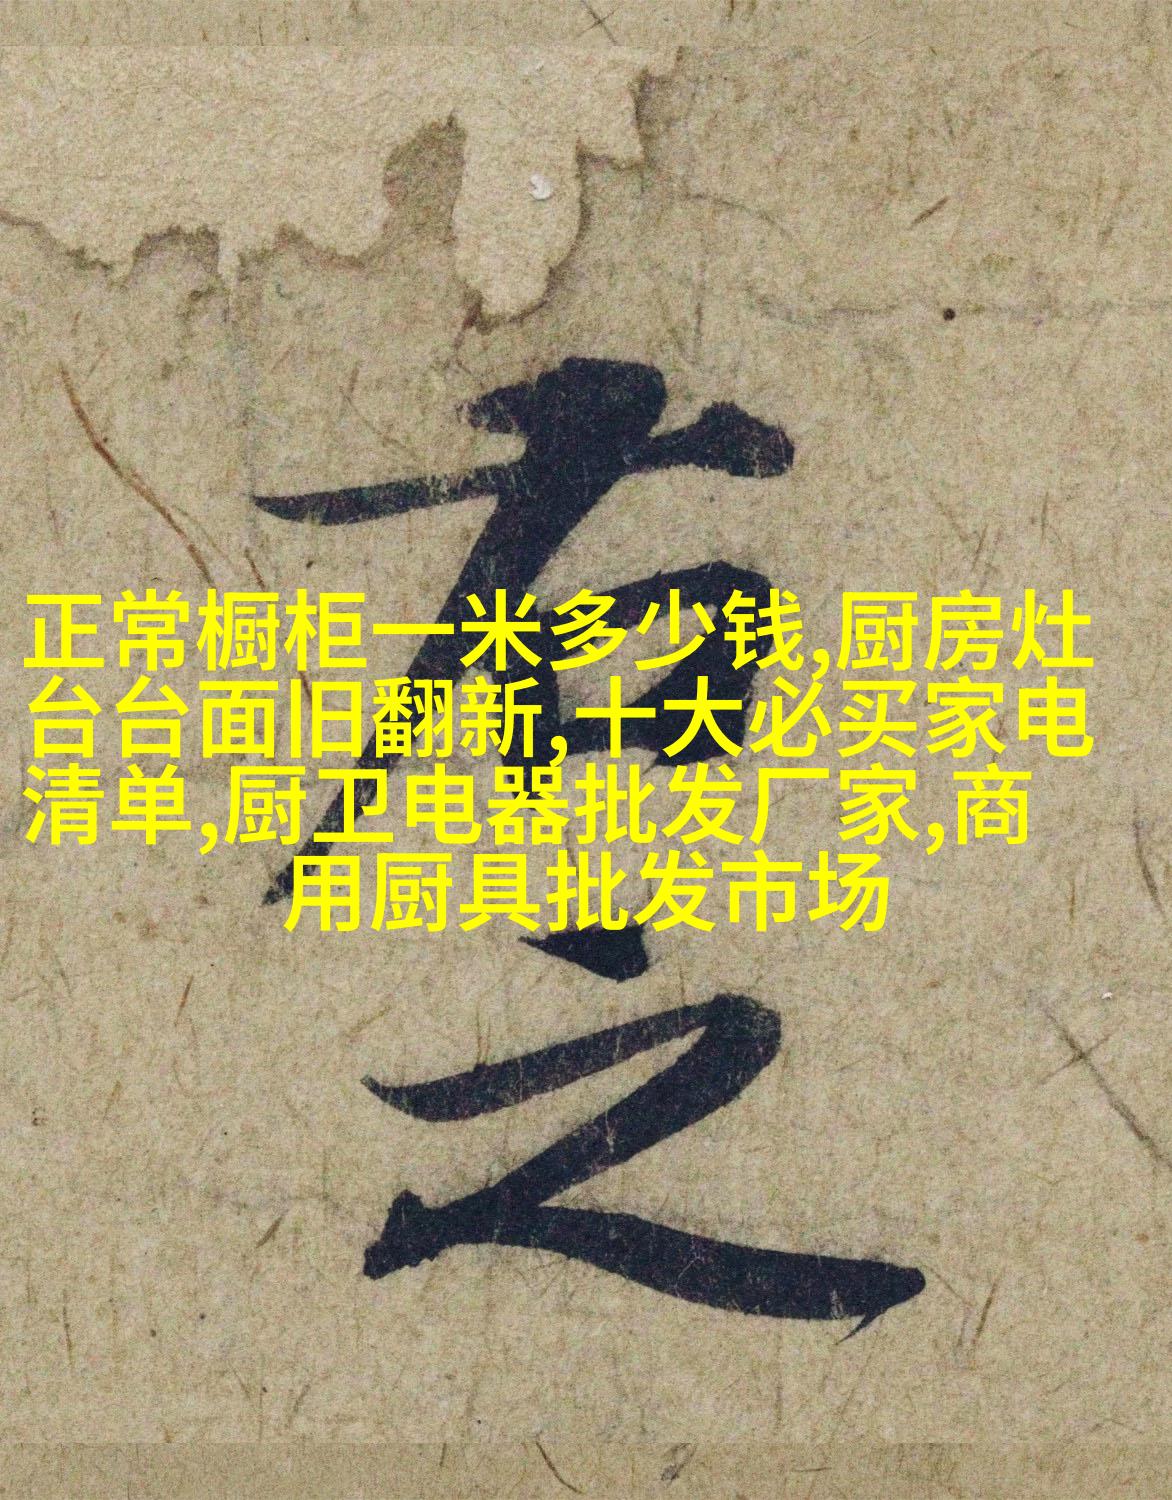 正常橱柜一米多少钱,厨房灶
台台面旧翻新,十大必买家电
清单,厨卫电器批发厂家,商
用厨具批发市场
右之